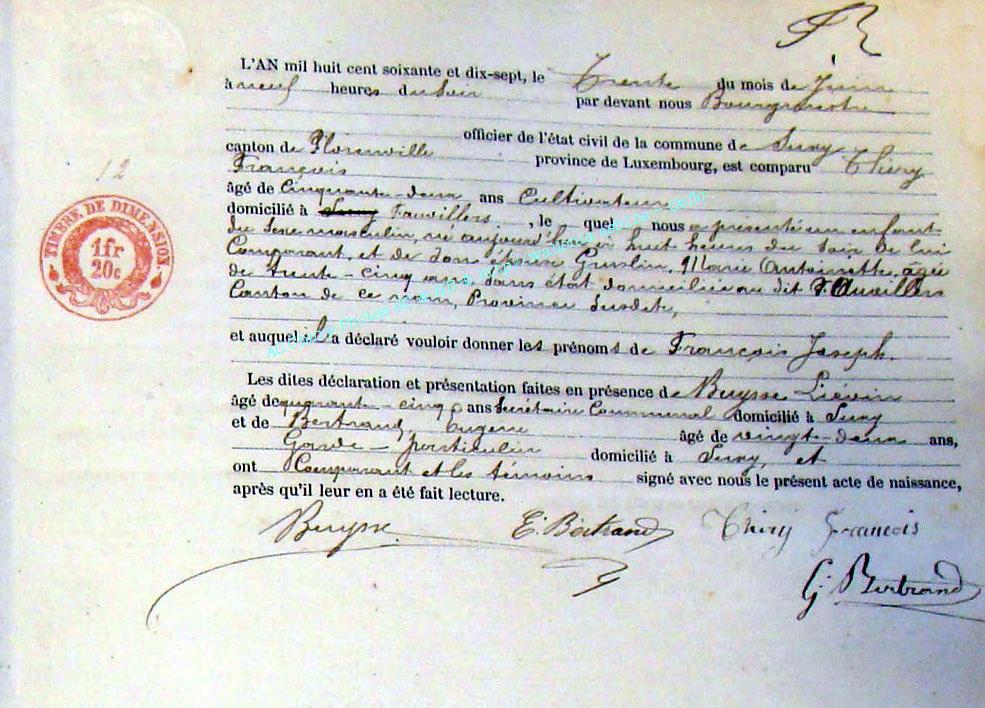 L'AN mil huit cent soixante et dix-sept, le Trente du mois de Juin
à neuf heures du Soir par devant nous Bourgmestre
officier de l'état civil de la commune de Suxy
canton de Florenville province de Luxembourg, est comparu Thiry
François
âgé de Cinquante-deux ans Cultivateur
domicilié à Suxy Fauvillers, le quel nous a présenté un enfant
du Sexe masculin, né aujourd'hui à huit heures du Soir de lui
Comparant, et de Son épouse Guslin, Marie Antoinette, âgée
de trente-cinq ans, Sans état domiciliée au dit Fauvillers
Canton de ce nom, Province Susdite,
et auquel il a déclaré vouloir donner les prénoms de François Joseph.
Les dites déclaration et présentation faites en présence de Buysse Liévin
âgé de quarante-cinq ans Secrétaire Communal domicilié à Suxy
et de Bertrand, Eugène âgé de vingt-deux ans,
Garde-particulier domicilié à Suxy, et
ont Comparant et les témoins signé avec nous le présent acte de naissance,
après qu'il leur en a été fait lecture.
Buysse E. Bertrand Thiry François
G. Bertrand
12
TIMBRE DE DIMENSION.
1fr
20c